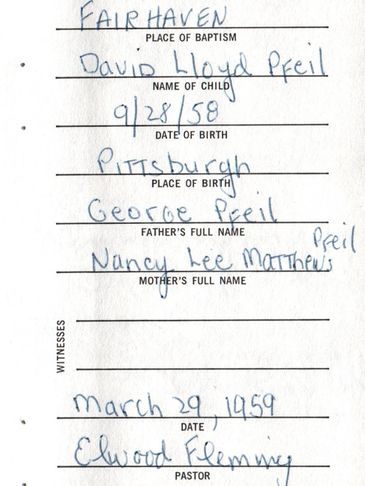 FAIRHAVEN
PLACE OF BAPTISM
David Lloyd Pfeil
NAME OF CHILD
9/28/58
DATE OF BIRTH
Pittsburgh
PLACE OF BIRTH
George Pfeil
FATHER'S FULL NAME
Pfeil
Nancy Lee Matthews
MOTHER'S FULL NAME
WITNESSES
March 29, 1959
DATE
Elwood Fleming
PASTOR